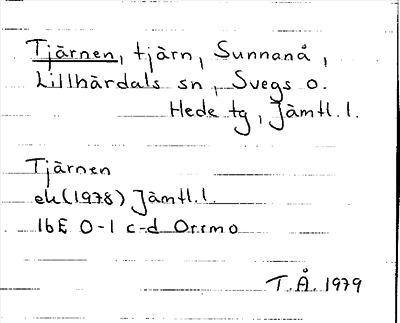 Tjärnen, tjärn, Sunnanå,
Lillhärdals sn, Svegs o.
Hede tg, Jämtl.l.
Tjärnen
ek(1978) Jämtl.l.
16E 0-1 c-d Orrmo
T.Å. 1979